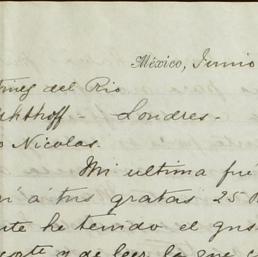 México, Junio
tinez del Rio
Londres.
Nicolas.
Mi ultima fué
á tus gratas 25
te he tenido el gus
y de leer la que